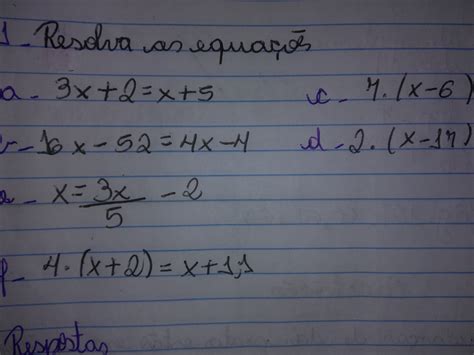 1 - Resolva as equações
a - 3x + 2 = x + 5
c - 7. (x - 6)
b - 16x - 52 = 4x - 4
d - 2. (x - 17)
e - x = 3x/5 - 2
f - 4. (x + 2) = x + 1,1
Respostas